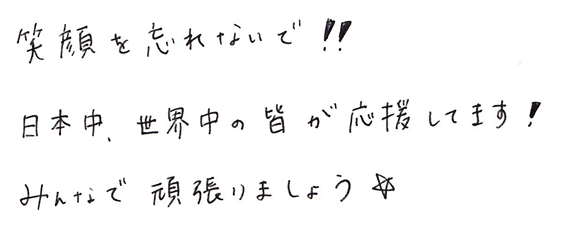 笑顔を忘れないで!!
日本中、世界中の皆が応援してます!
みんなで頑張りましょう☆